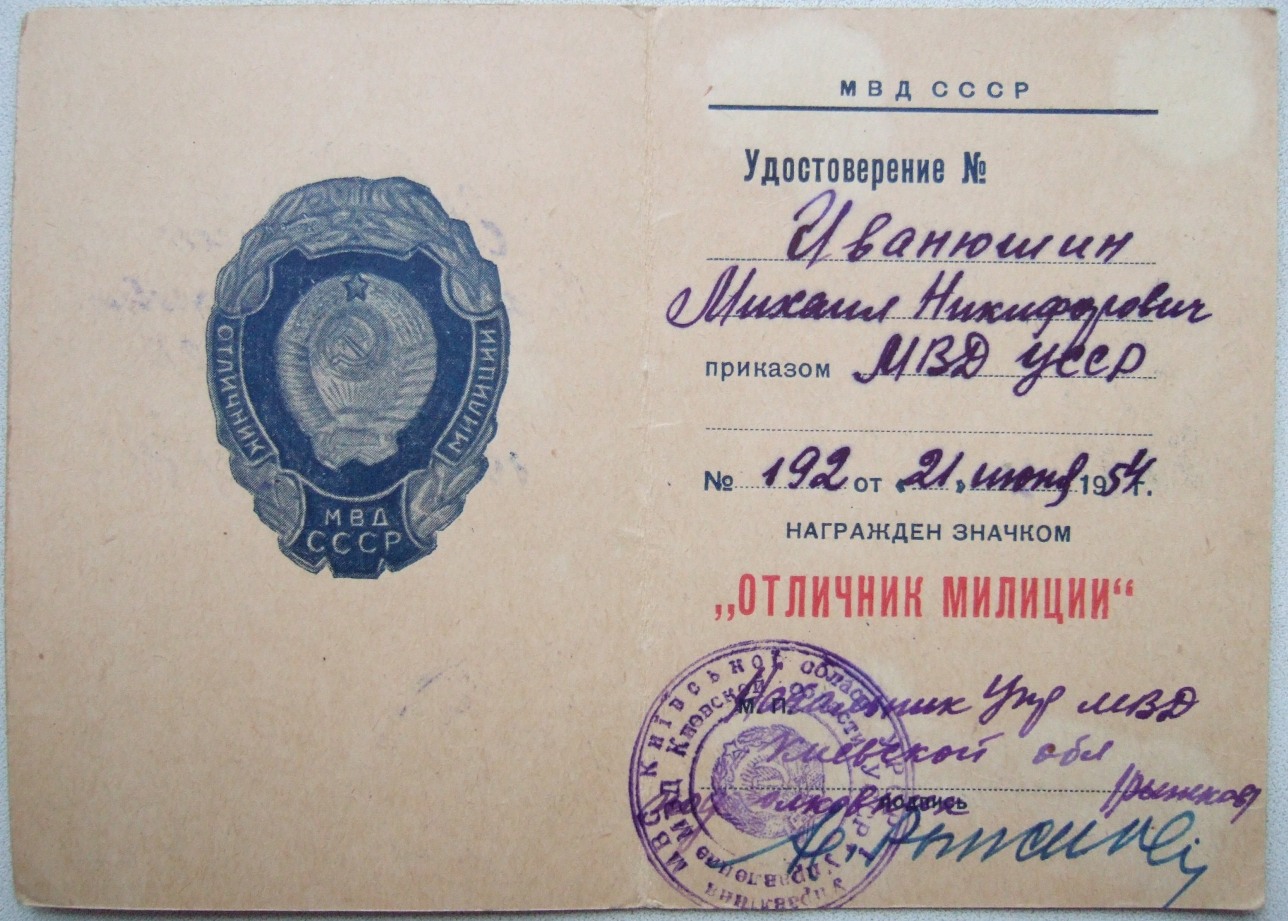 ОТЛИЧНИК
МИЛИЦИИ
МВД
СССР
МВД СССР
Удостоверение №
Иванюшин
Михаил Никифорович
приказом МВД УССР
№ 192 от „21„ июня 1954 г.
НАГРАЖДЕН ЗНАЧКОМ
„ОТЛИЧНИК МИЛИЦИИ“
Начальник Упр МВД
М. П.
Киевской обл
подпись
Управління МВС Київської області УРСР
Управление МВД Киевской области УССР